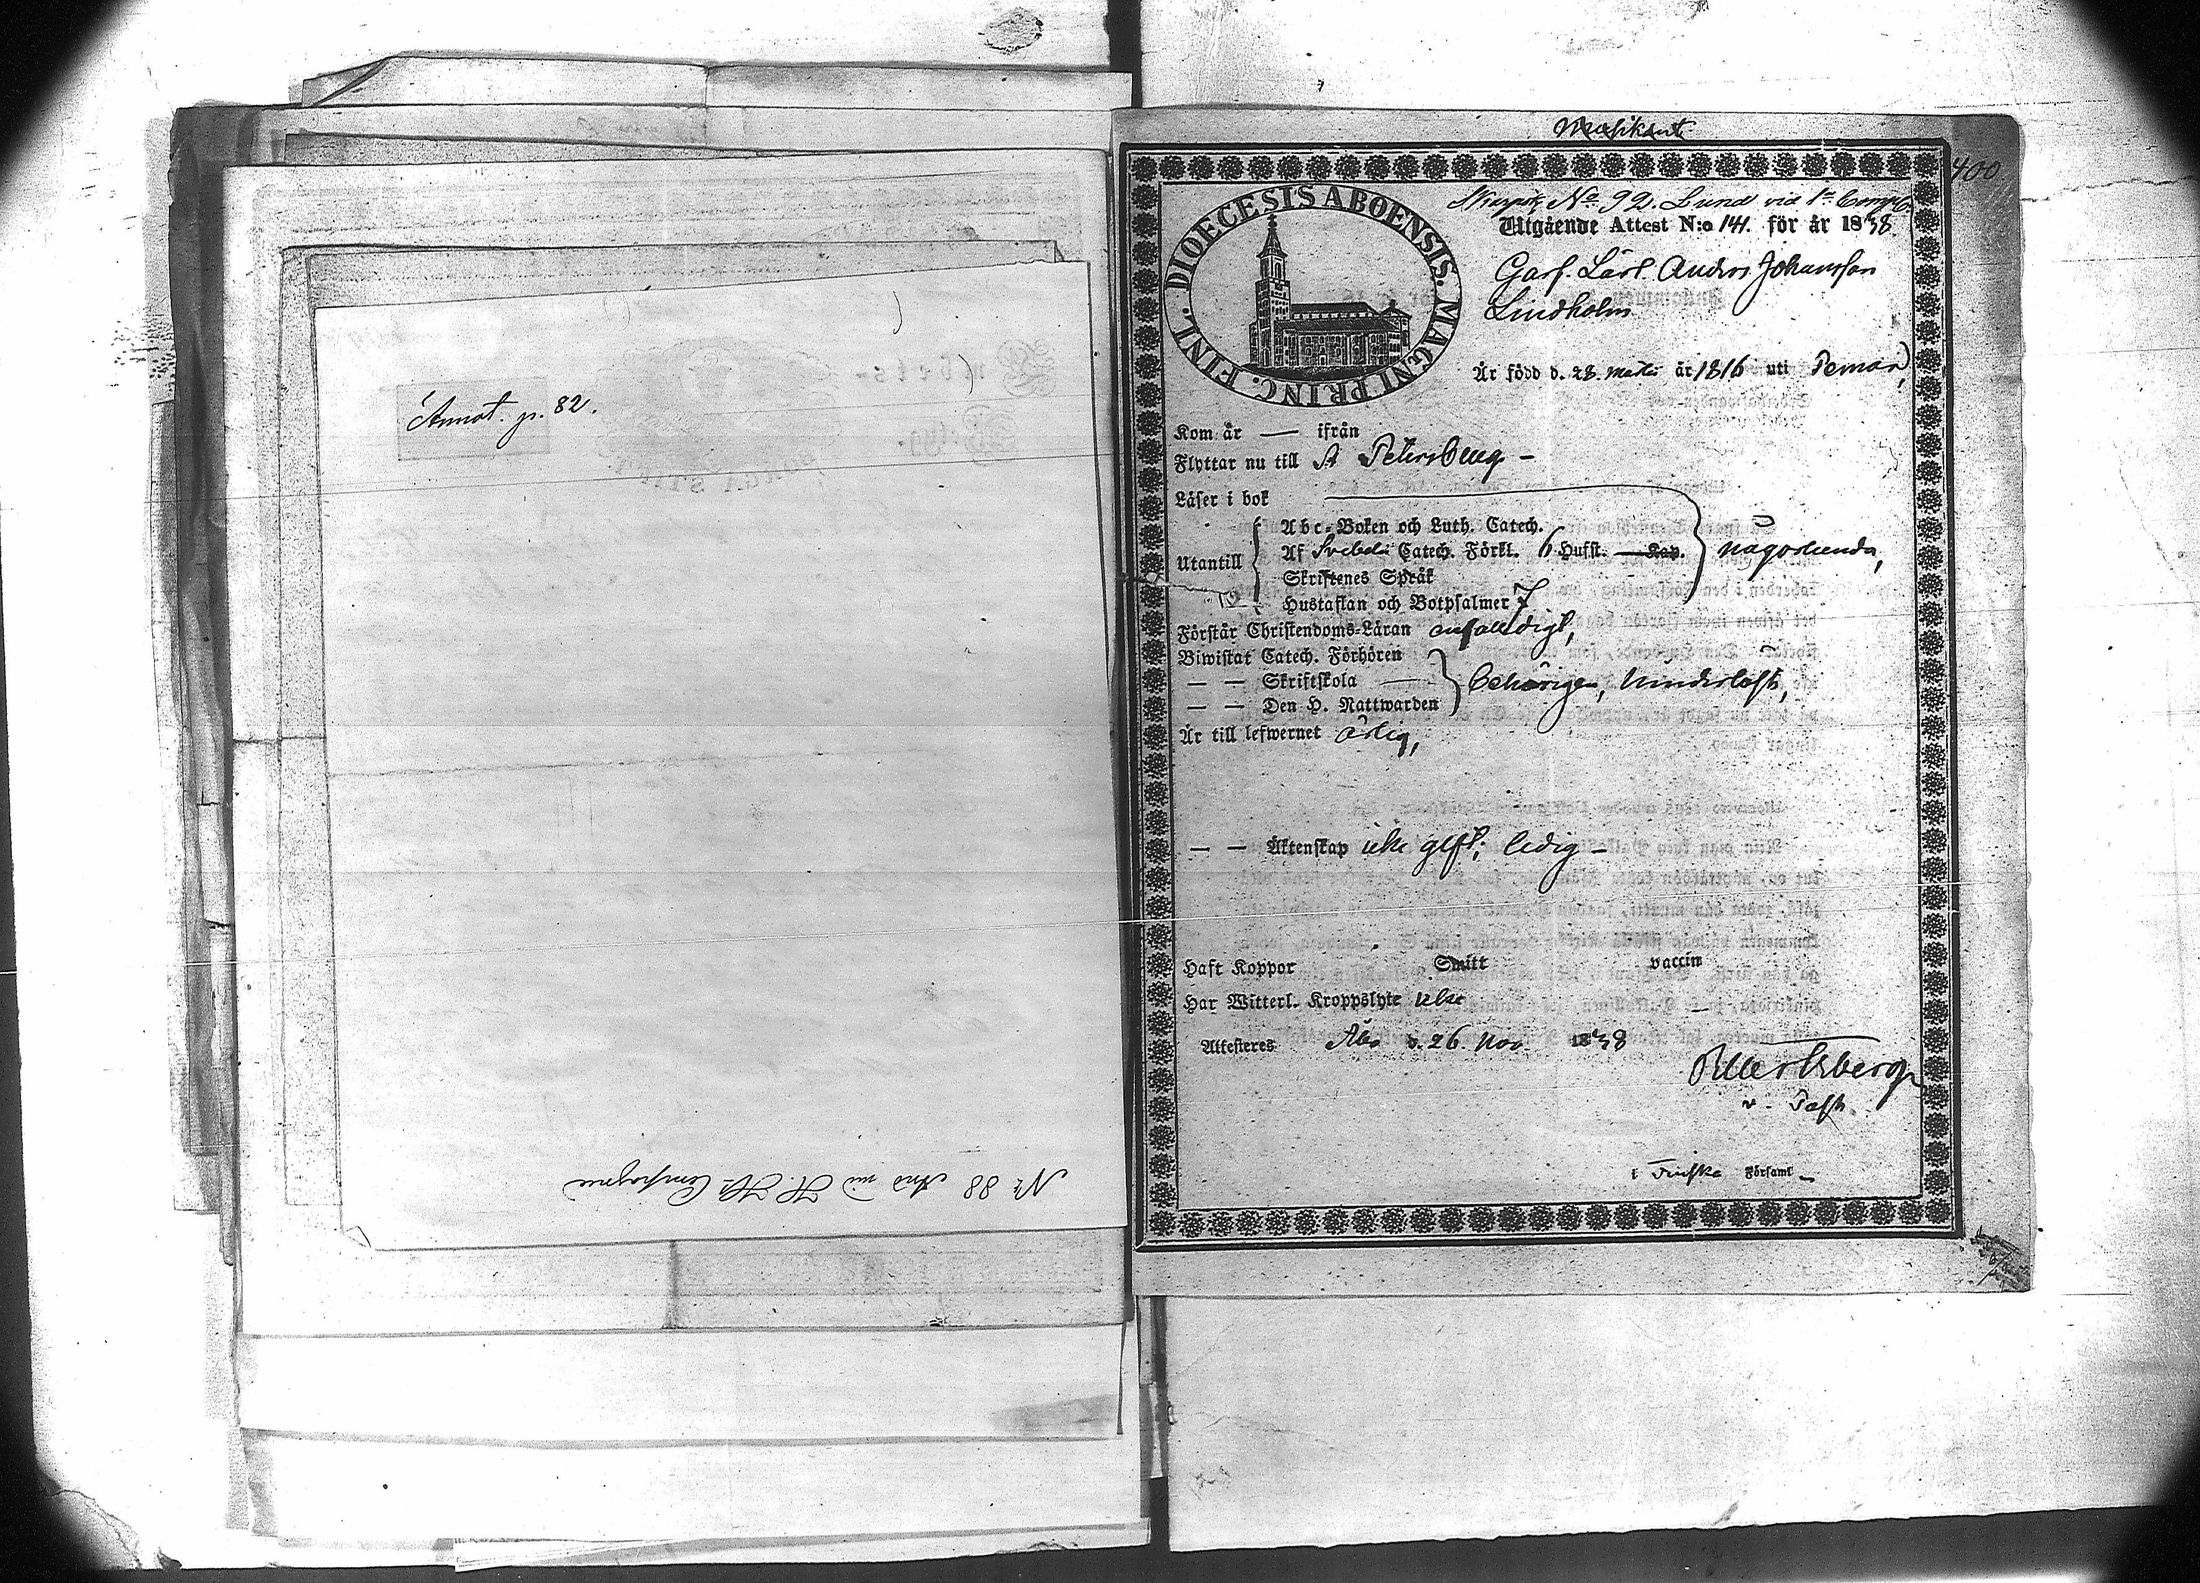 Annot. p. 82.
No 88 And wid H. K. Compagnie
Musikant
400
No 92. Lund vid 1a Comp.
DIOECESIS ABOENSIS. MAGNI PRINC. FINL.
Utgående Attest N:o 141. för år 1838
Garf. Lärl. Anders Johansson
Lindholm
Är född d. 28 Martii år 1816 uti Pemar,
Kom år — ifrån
Flyttar nu till St Petersburg –
Läser i bok
Utantill
Abc-Boken och Luth. Catech.
Af Svebelii Catech. Förkl. 6 Hufst. — Kap.
Skriftenes Språk
Hustaflan och Botpsalmer 7
någorlunda,
Förstår Christendoms-Läran enfalldigt,
Biwistat Catech. Förhören
— — Skriftskola —
— — Den H. Nattwarden
behörigen,
Är till lefwernet ärlig,
— — Äktenskap icke gift; ledig –
Haft Koppor Smitt vaccin
Har Witterl. Kroppslyte icke
Attesteres Åbo d. 26 Nov 1838
v. Past.
i Finska Församl –